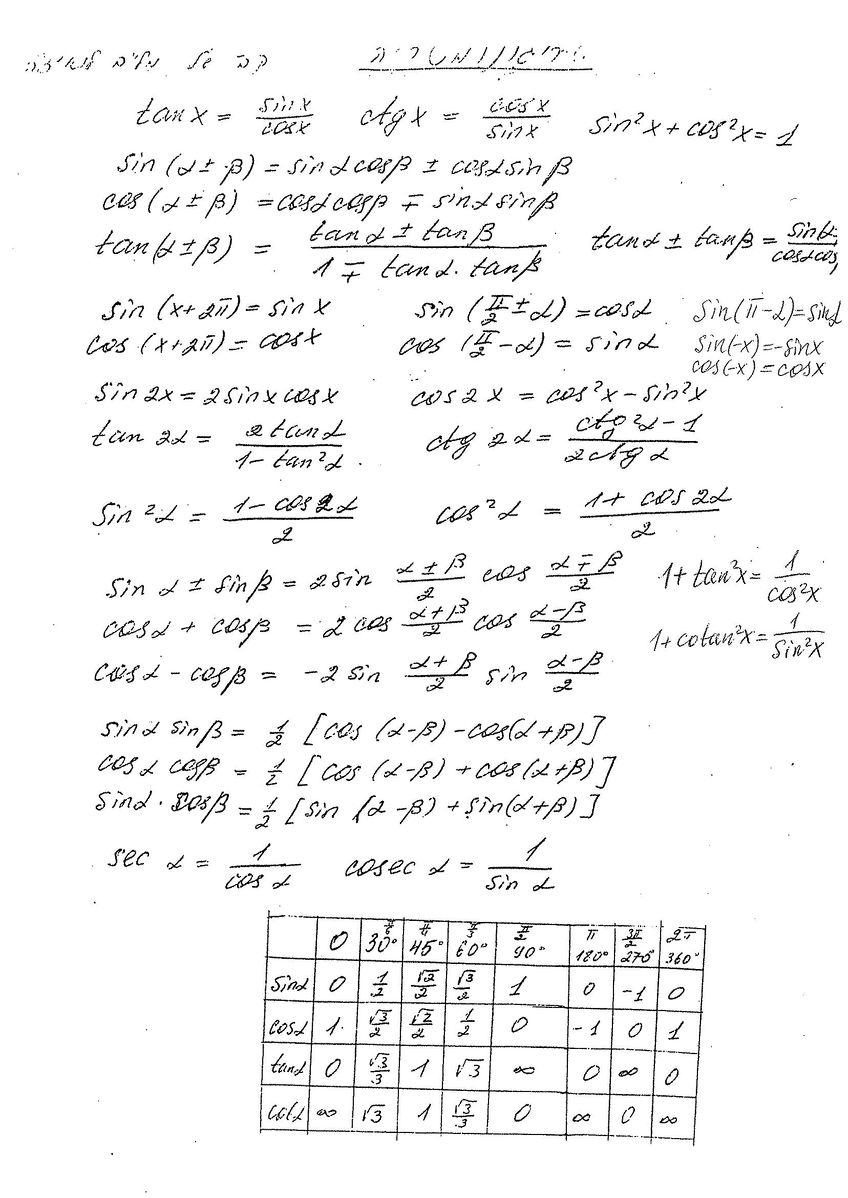 טריגונומטריה
tan x = sin x / cos x   ctg x = cos x / sin x   sin²x + cos²x = 1
sin (α ± β) = sin α cos β ± cos α sin β
cos (α ± β) = cos α cos β ∓ sin α sin β
tan (α ± β) = (tan α ± tan β) / (1 ∓ tan α · tan β)   tan α ± tan β = sin(α / cos α cos
sin (x + 2π) = sin x   sin (π/2 ± α) = cos α   sin(π - α) = sin α
cos (x + 2π) = cos x   cos (π/2 - α) = sin α   sin(-x) = -sin x
cos(-x) = cos x
sin 2x = 2 sin x cos x   cos 2x = cos²x - sin²x
tan 2α = 2 tan α / (1 - tan²α)   ctg 2α = (ctg²α - 1) / 2ctg α
sin²α = (1 - cos 2α) / 2   cos²α = (1 + cos 2α) / 2
sin α ± sin β = 2 sin (α ± β)/2 cos (α ∓ β)/2   1 + tan²x = 1 / cos²x
cos α + cos β = 2 cos (α + β)/2 cos (α - β)/2   1 + cotan²x = 1 / sin²x
cos α - cos β = -2 sin (α + β)/2 sin (α - β)/2
sin α sin β = 1/2 [cos (α - β) - cos(α + β)]
cos α cos β = 1/2 [cos (α - β) + cos (α + β)]
sin α · cos β = 1/2 [sin (α - β) + sin(α + β)]
sec α = 1 / cos α   cosec α = 1 / sin α
0   π/6 30°   π/4 45°   π/3 60°   π/2 90°   π 180°   3π/2 270°   2π 360°
sin α   0   1/2   √2/2   √3/2   1   0   -1   0
cos α   1   √3/2   √2/2   1/2   0   -1   0   1
tan α   0   √3/3   1   √3   ∞   0   ∞   0
cot α   ∞   √3   1   √3/3   0   ∞   0   ∞